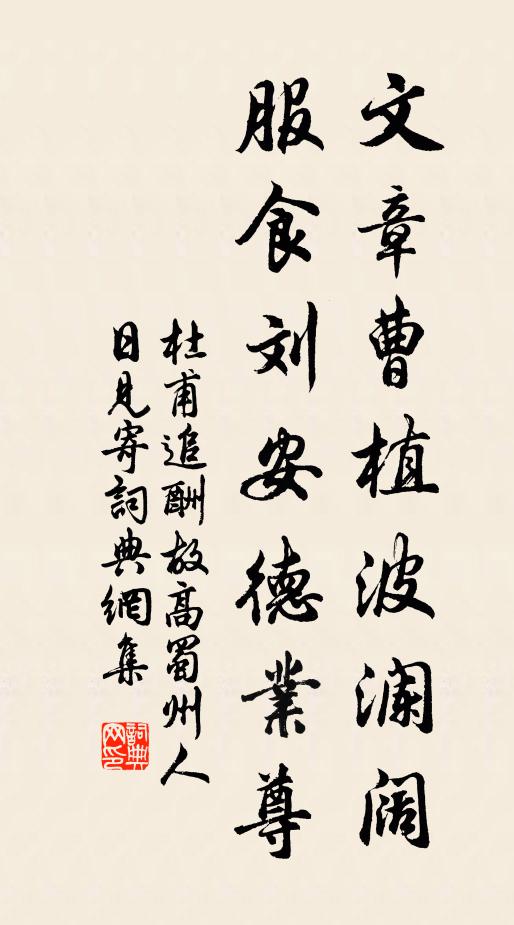 文章曹植波澜阔
服食刘安德業尊
杜甫追酬故高蜀州人
日見寄詞典網集
詞典网印